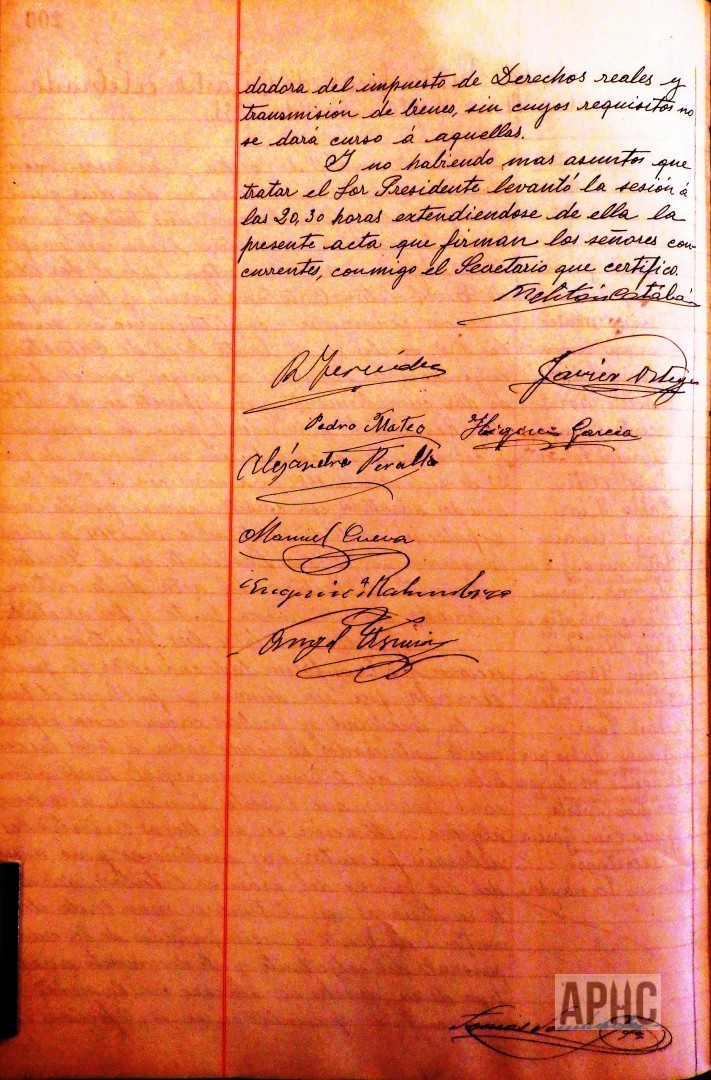 dadora del impuesto de Derechos reales y
transmisión de bienes, sin cuyos requisitos no
se dará curso á aquellas.
Y no habiendo mas asuntos que
tratar el Sor Presidente levantó la sesión á
las 20,30 horas extendiendose de ella la
presente acta que firman los señores con-
currentes, conmigo el Secretario que certifico.
Javier Ortega
Pedro Mateo Higinio García
Alejandro Peralta
Manuel Cueva
Angel
APHC